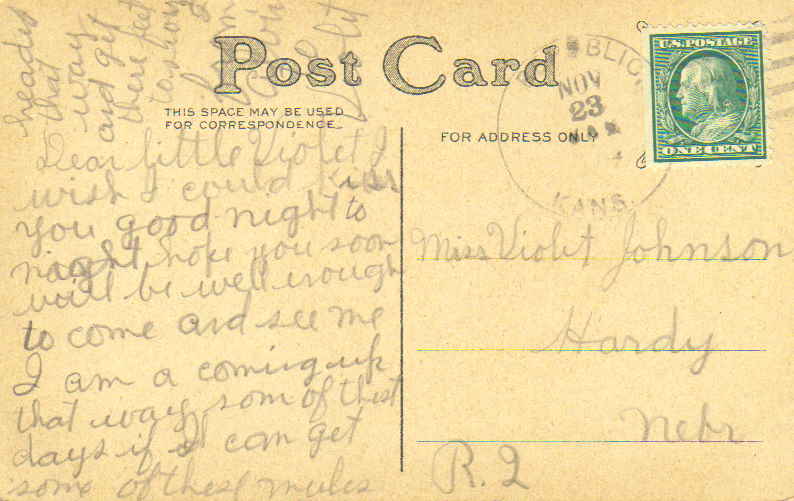 Post Card
THIS SPACE MAY BE USED
FOR CORRESPONDENCE
FOR ADDRESS ONLY
U.S. POSTAGE
ONE CENT
NOV
23
KANS.
Dear little Violet I
wish I could kiss
you good night to
night hope you soon
will be well enough
to come and see me
I am a coming up
that way som of thist
days if I can get
som of these mules
headed
that
way
and get
there feet
Miss Violet Johnson
Hardy
Nebr
R.2